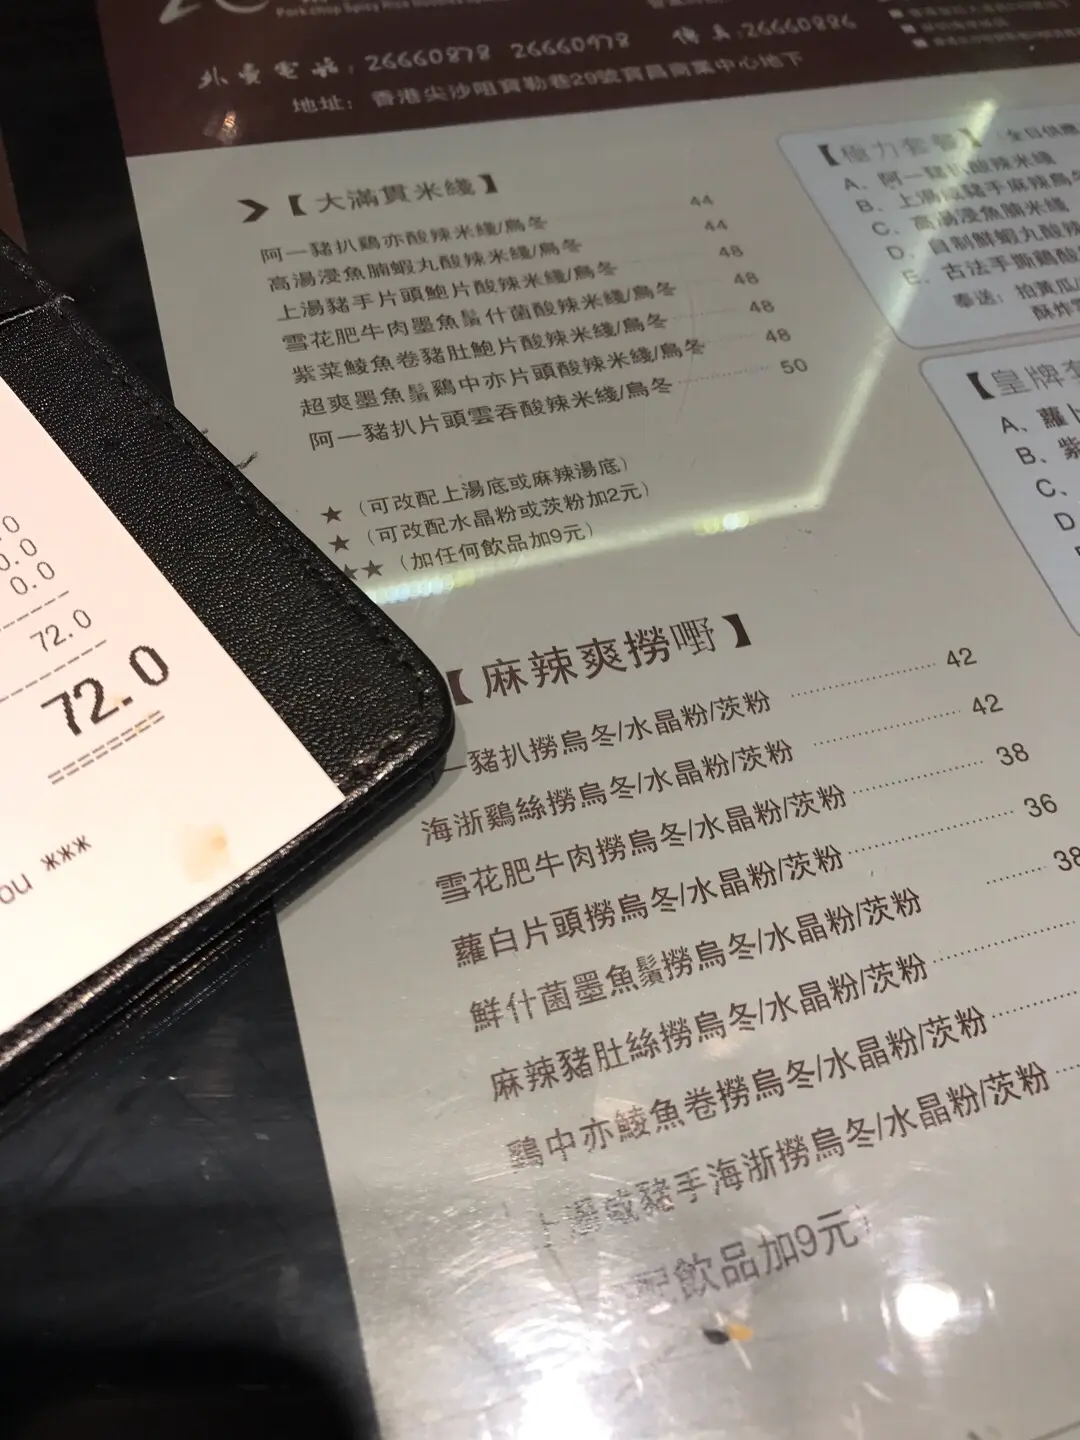 Pork chop Spicy Rice Noodles
外賣電話：26660878 26660978 傳真:26660886
地址：香港尖沙咀寶勒巷29號寶昌商業中心地下
【大滿貫米綫】
阿一豬扒鷄亦酸辣米綫/烏冬 44
高湯浸魚腩蝦丸酸辣米綫/烏冬 44
上湯豬手片頭鮑片酸辣米綫/烏冬 48
雪花肥牛肉墨魚鬚什菌酸辣米綫/烏冬 48
紫菜鯪魚卷豬肚鮑片酸辣米綫/烏冬 48
超爽墨魚鬚鷄中亦片頭酸辣米綫/烏冬 48
阿一豬扒片頭雲吞酸辣米綫/烏冬 50
★（可改配上湯底或麻辣湯底）
★（可改配水晶粉或茨粉加2元）
★★（加任何飲品加9元）
【極力套餐】（全日供應
A、阿一豬扒酸辣米綫
B、上湯咸豬手麻辣烏冬
C、高湯浸魚腩米綫
D、自制鮮蝦丸酸辣
E、古法手撕鷄酸
奉送：拍黃瓜/
酥炸
【皇牌套
A、蘿卜
B、紫
C、
D
【麻辣爽撈嘢】
一豬扒撈烏冬/水晶粉/茨粉 42
海浙鷄絲撈烏冬/水晶粉/茨粉 42
雪花肥牛肉撈烏冬/水晶粉/茨粉 38
蘿白片頭撈烏冬/水晶粉/茨粉 36
鮮什菌墨魚鬚撈烏冬/水晶粉/茨粉 38
麻辣豬肚絲撈烏冬/水晶粉/茨粉
鷄中亦鯪魚卷撈烏冬/水晶粉/茨粉
上湯咸豬手海浙撈烏冬/水晶粉/茨粉
配飲品加9元）
0.0
0.0
72.0
72.0
ou ***